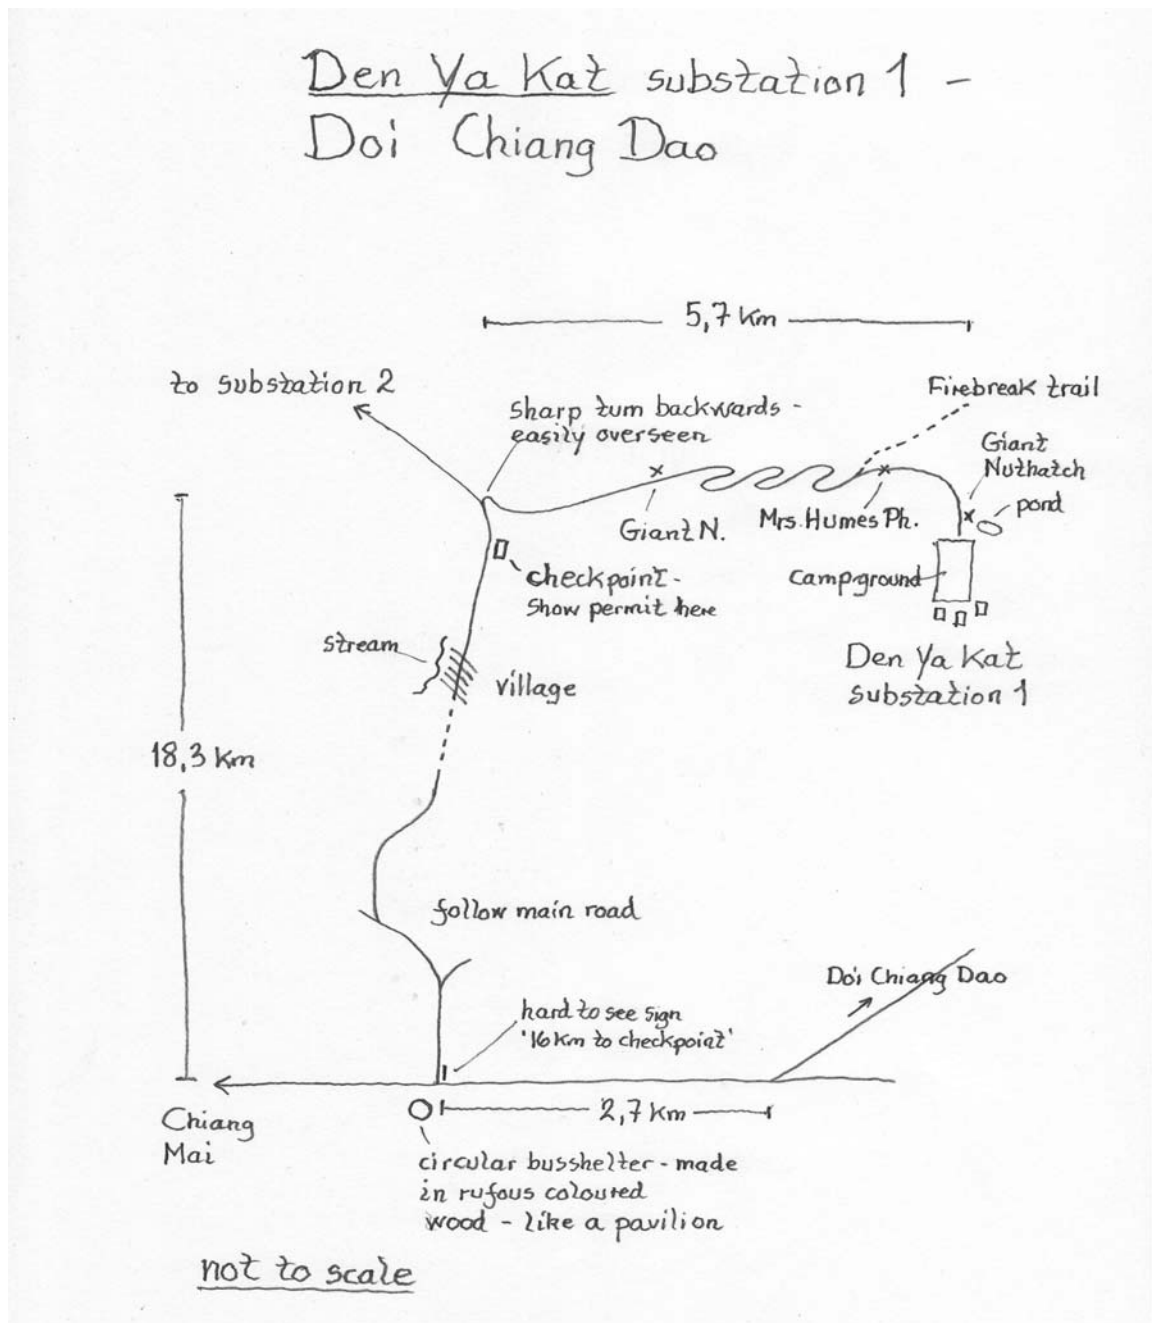 Den Ya Kat substation 1 -
Doi Chiang Dao
5,7 km
to substation 2
Firebreak trail
sharp turn backwards -
easily overseen
Giant
Nuthatch
pond
Giant N.
Mrs. Humes Ph.
checkpoint -
show permit here
campground
stream
village
Den Ya Kat
substation 1
18,3 km
follow main road
Doi Chiang Dao
hard to see sign
'16 km to checkpoint'
Chiang
Mai
2,7 km
circular busshelter - made
in rufous coloured
wood - like a pavilion
not to scale